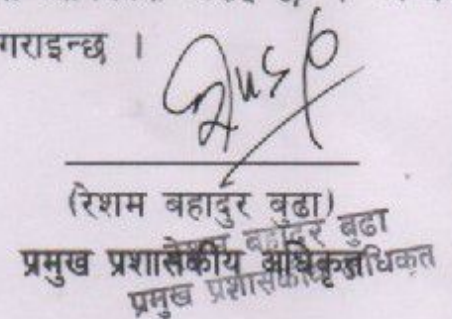 गराइन्छ ।
(रेशम बहादुर बुढा)
प्रमुख प्रशासकीय अधिकृत
रेशम बहादुर बुढा
प्रमुख प्रशासकीय अधिकृत